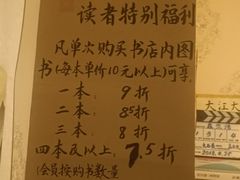 读者特别福利
凡单次购买书店内图
书(每本单价10元以上)可享
一本: 9折
二本: 85折
三本: 8折
四本及以上: 7.5折
(会员按购书数量
大江大